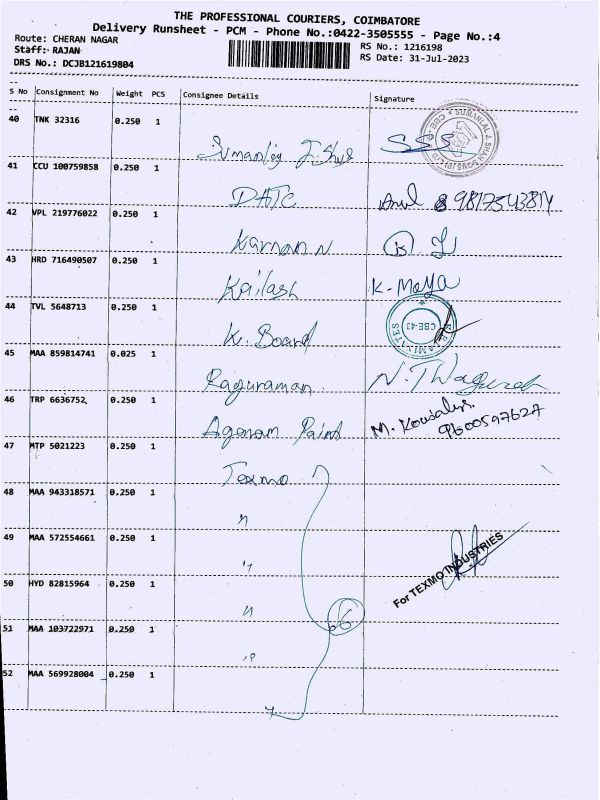 THE PROFESSIONAL COURIERS, COIMBATORE
Delivery Runsheet - PCM - Phone No.:0422-3505555 - Page No.:4
Route: CHERAN NAGAR RS No.: 1216198
Staff: RAJAN RS Date: 31-Jul-2023
DRS No.: DCJB121619804
S No Consignment No Weight PCS Consignee Details Signature
40 TNK 32316 0.250 1
SUMANLAL J. SHAH
41 CCU 100759858 0.250 1
DATC 9817543814
42 VPL 219776022 0.250 1
Karnan N
43 HRD 716490507 0.250 1
Kailash K. Maya
44 TVL 5648713 0.250 1
K. Board CBE-43
45 MAA 859814741 0.025 1
Raguraman
46 TRP 6636752 0.250 1
Paint M. Kousalya
9600597627
47 MTP 5021223 0.250 1
Texmo
48 MAA 943318571 0.250 1
"
49 MAA 572554661 0.250 1
"
For TEXMO INDUSTRIES
50 HYD 82815964 0.250 1
"
6
51 MAA 103722971 0.250 1
"
52 MAA 569928004 0.250 1